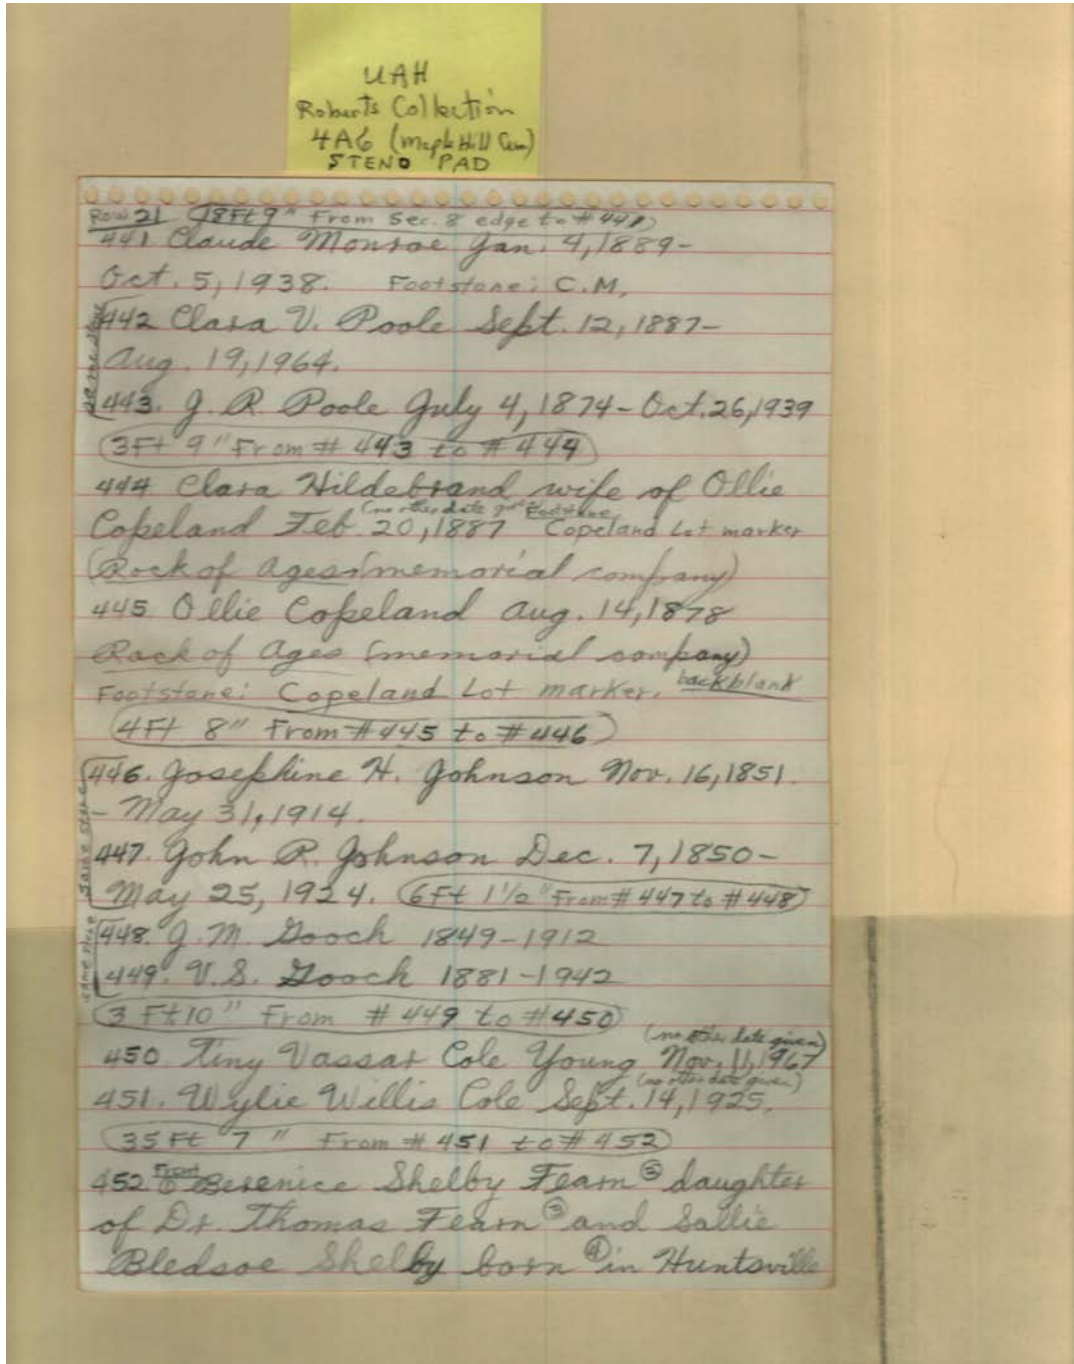 UAH
Roberts Collection
4A6 (Maple Hill Cem)
STENO PAD
Row 21 (18Ft 9" From Sec. 8 edge to #441)
441 Claude Monroe Jan. 4, 1889-
Oct. 5, 1938. Footstone: C.M.
same stone
442 Clara V. Poole Sept. 12, 1887-
Aug. 19, 1964.
443. J. R. Poole July 4, 1874-Oct. 26, 1939
(3Ft 9" From #443 to #444)
444 Clara Hildebrand wife of Ollie
(no other date given) Footstone
Copeland Feb. 20, 1887 Copeland Lot marker
(Rock of Ages memorial company)
445. Ollie Copeland Aug. 14, 1878
Rock of Ages (memorial company)
Footstone: Copeland Lot marker. back blank
(4Ft 8" From #445 to #446)
same stone
446. Josephine H. Johnson Nov. 16, 1851.
- May 31, 1914.
447. John R. Johnson Dec. 7, 1850-
May 25, 1924. (6Ft 1 1/2" From #447 to #448)
same stone
448. J. M. Gooch 1849-1912
449. V. S. Gooch 1881-1942
(3 Ft 10" From #449 to #450)
(no other date given)
450. Tiny Vassar Cole Young Nov. 11, 1967
(no other date given)
451. Wylie Willis Cole Sept. 14, 1925.
(35 Ft 7" From #451 to #452)
452 Front Berenice Shelby Fearn daughter
of Dr. Thomas Fearn ③ and Sallie
Bledsoe Shelby born ④ in Huntsville